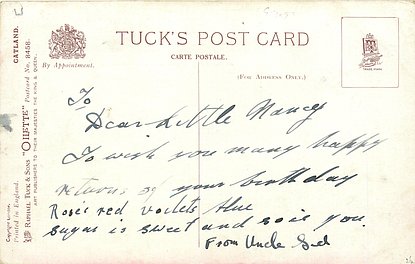 TUCK'S POST CARD
CARTE POSTALE.
(FOR ADDRESS ONLY.)
By Appointment.
CATLAND.
RAPHAEL TUCK & SONS "OILETTE" Postcard No. 8458.
ART PUBLISHERS TO THEIR MAJESTIES THE KING & QUEEN.
Printed in England.
Copyright
TRADE MARK
To
Dear Little Nancy
To wish you many happy
returns of your birthday
Roses red voilets blue
Sugar is sweet and so is you.
From Uncle Sid